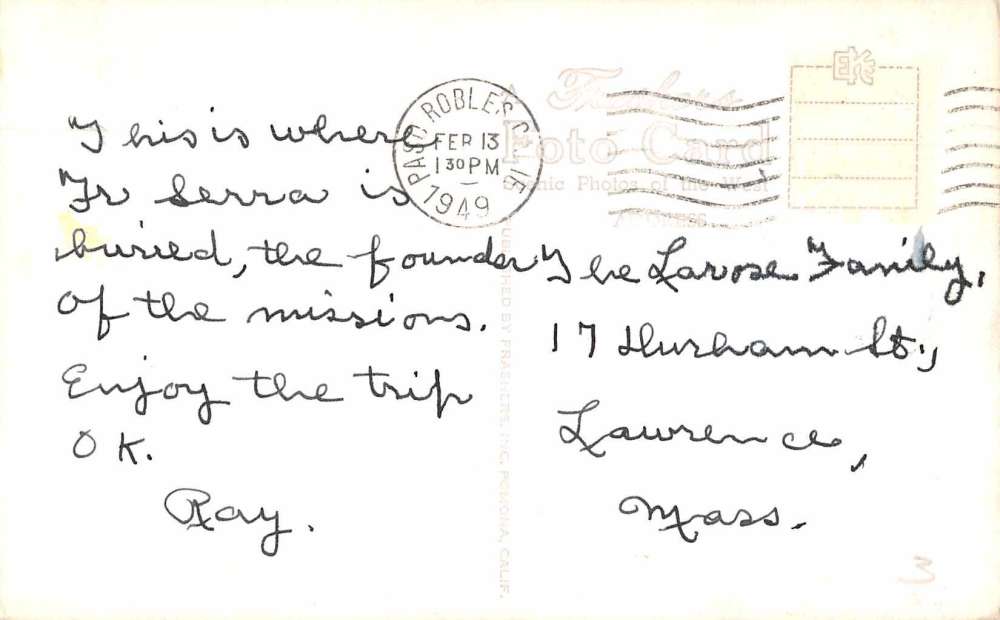 This is where
Fr Serra is
buried, the founder
of the missions.
Enjoy the trip
OK.
Ray.
PASO ROBLES CALIF.
FEB 13
1 30 PM
1949
Frashers
Foto Card
Scenic Photos of the West
ADDRESS
EKC
PUBLISHED BY FRASHERS, INC. POMONA, CALIF.
The Larose Family,
17 Durham St.,
Lawrence,
Mass.
3